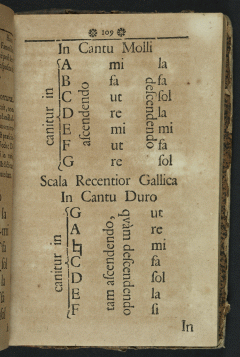 ❊ 109 ❊
In Cantu Molli
canitur in
A mi la
B fa fa
C ut sol
D re la
E mi mi
F ut fa
G re sol
ascendendo
descendendo
Scala Recentior Gallica
In Cantu Duro
canitur in
G ut
A re
♮ mi
C fa
D sol
E la
F si
tam ascendendo,
quàm descendendo
In